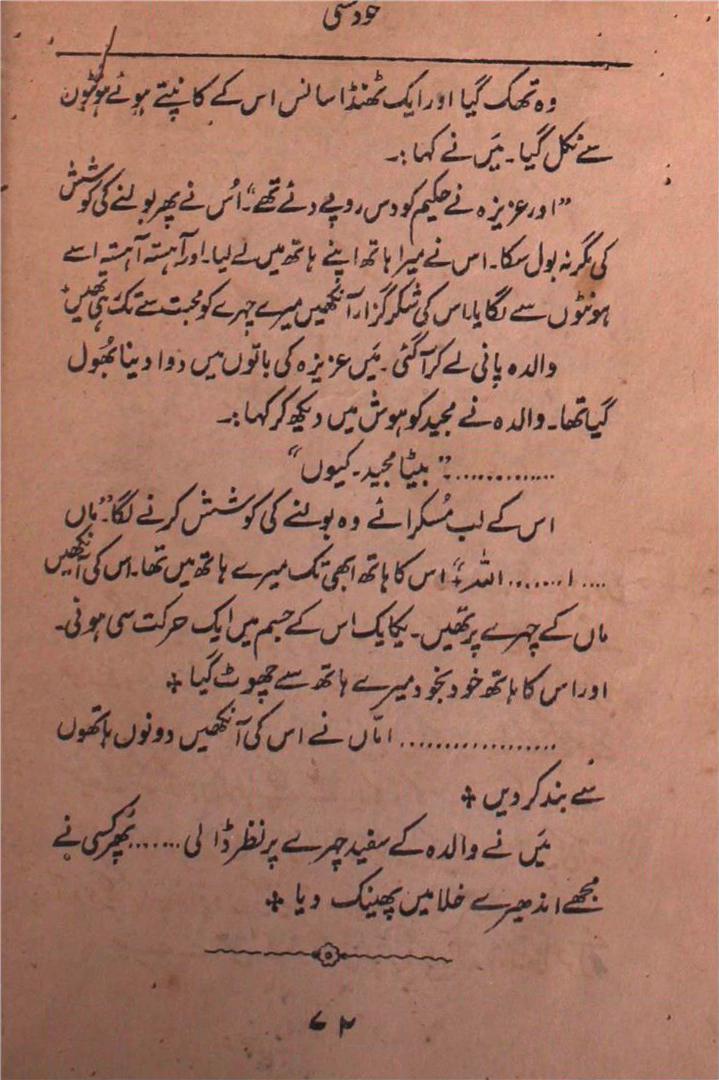 خودکشی
وہ تھک گیا اور ایک ٹھنڈا سانس اس کے کانپتے ہوئے ہونٹوں
سے نکل گیا۔ مَیں نے کہا :۔
”اور عزیزہ نے حکیم کو دس روپے دئے تھے“۔ اُس نے پھر بولنے کی کوشش
کی مگر نہ بول سکا۔ اس نے میرا ہاتھ اپنے ہاتھ میں لے لیا۔ اور آہستہ آہستہ اسے
ہونٹوں سے لگایا، اس کی شکر گزار آنکھیں میرے چہرے کو محبت سے تک رہی تھیں +
والدہ پانی لے کر آ گئی۔ مَیں عزیزہ کی باتوں میں دوا دینا بھُول
گیا تھا۔ والدہ نے مجید کو ہوش میں دیکھ کر کہا :۔
.............. ” بیٹا مجید۔ کیوں“
اس کے لب مُسکرائے وہ بولنے کی کوشش کرنے لگا ”ماں
.... ا ....... اللہ“ + اس کا ہاتھ ابھی تک میرے ہاتھ میں تھا۔ اس کی آنکھیں
ماں کے چہرے پر تھیں۔ یکایک اس کے جسم میں ایک حرکت سی ہوئی۔
اور اس کا ہاتھ خود بخود میرے ہاتھ سے چھوٹ گیا +
.................. امّاں نے اس کی آنکھیں دونوں ہاتھوں
سے بند کر دیں +
مَیں نے والدہ کے سفید چہرے پر نظر ڈالی ....... پھر کسی نے
مجھے اندھیرے خلا میں پھینک دیا +
۷۲